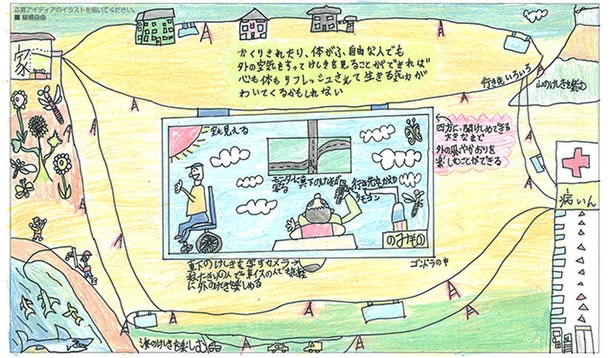 応募アイディアのイラストを描いてください。
■ 縦横自由
家
かくりされたり、体がふ自由な人でも
外の空気をすってけしきを見ることができれば
心も体もリフレッシュされて生きる気力が
わいてくるかもしれない
行き先いろいろ
山のけしきを楽しむ
空も見える
四方に開けしめできる
大きなまど
外の風やかおりを
楽しむことができる
モニターに真下のけしきが
写る
リモコン
のみもの
病いん
ゴンドラの中
真下のけしきを写すカメラ
ねたきりの人でも車イスの人でも
に外のけしきを楽しめる
海のけしきも楽しむ